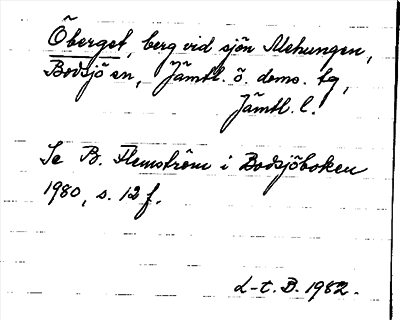 Öberget, berg vid sjön Mehungen,
Bodsjö sn, Jämtl. ö. doms. tg,
Jämtl. l.
Se B. Flemström i Bodsjöboken
1980, s. 12 f.
L-t. B. 1982.